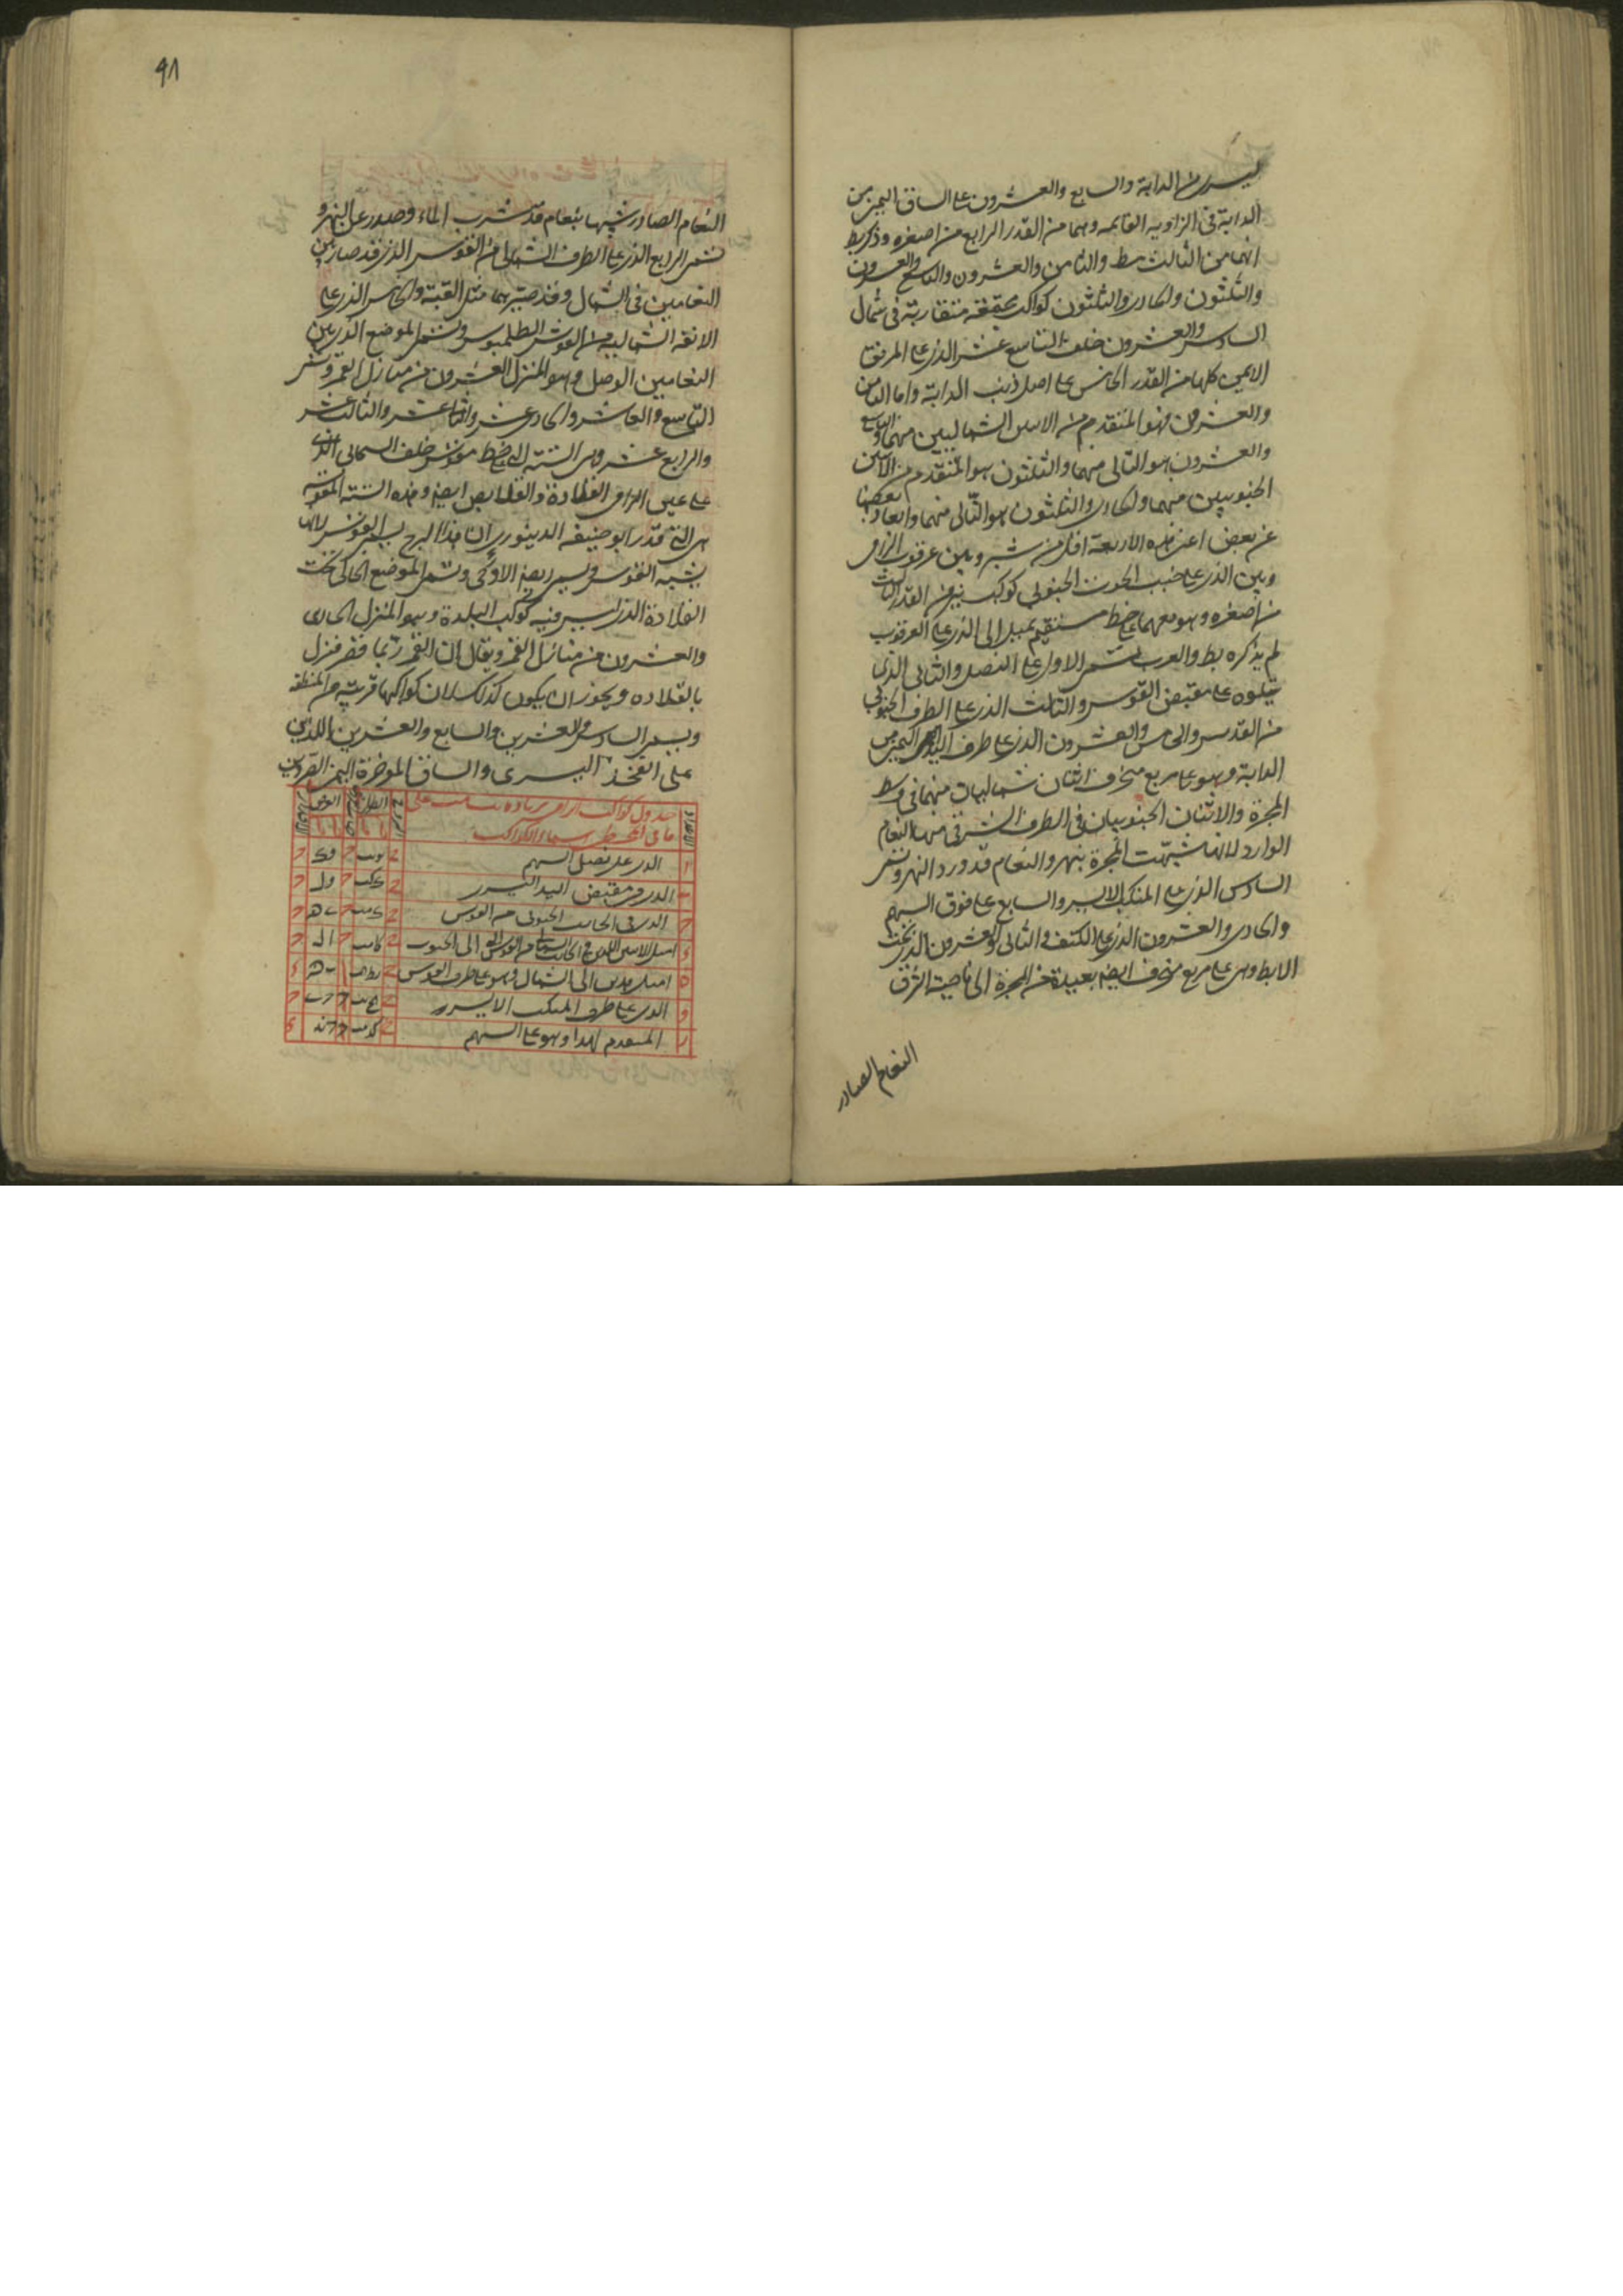 اليسرى من الدابة والسابع والعشرون على الساق اليمنى من
الدابة فى الزاويه القايمه وهما من القدر الرابع من اصغره وذكر بط
انهما من الثالث بط والثامن والعشرون والتاسع والعشرون
والثلثون والحادى والثلثون كواكب مجتمعة متقاربة فى شمال
السادس والعشرون خلف التاسع عشر الذى على المرفق
الايمن كلها من القدر الخامس على اصل ذنب الدابة واما الثامن
والعشرون فهو المتقدم من الاثنين الشماليين منها والتاسع
والعشرون هو التالى منهما والثلثون هو المتقدم من الاثنين
الجنوبيين منهما والحادى والثلثون هو التالى منهما وابعاد بعضها
عن بعض اعنى هذه الاربعة اقل من شبر وبين عرقوب الرامى
وبين الذى على ذنب الحوت الجنوبى كوكب نير من القدر الثالث
من اصغره وهو معهما على خط مستقيم يميل الى الذى على العرقوب
لم يذكره بط والعرب تسمى الاول على النصل والثانى الذى
يتلوه على مقبض القوس والثالث الذى على الطرف الجنوبى
من القوس والخامس والعشرون الذى على طرف اليد اليمنى من
الدابة وهو على مربع منحرف اثنان شماليان منهما فى وسط
المجرة والاثنان الجنوبيان فى الطرف الشرقى منها النعام
الوارد لانها شبهت المجرة بنهر والنعام قد ورد النهر وتسمى
السادس الذى على المنكب الايسر والسابع على فوق السهم
والحادى والعشرون الذى على الكتف والثانى والعشرون الذى تحت
الابط وهى على مربع منحرف ايضا بعيدة عن المجرة الى ناحية الشرق
النعام الصادر
٩٨
النعام الصادر شبهها بنعام قد شرب الماء وصدور عن النهر و
تسمى الرابع الذى على الطرف الشمالى من القوس الذى قد صار بين
النعامين فى الشمال وقد صير بها مثل القبة والخامس الذى على
الشماليه من القوس وتسمى الموضع الذى بين
النعامين الوصل وهو المنزل العشرون من منازل القمر وتسمى
التاسع والعاشر والحادى عشر والثانى عشر والثالث عشر
والرابع عشر وهى الستة التى على خط مقوس خلف السحابى الذى
على عين الرامى القلادة والقلايص ايضا وهذه الستة المقوسة
هى التى قدر ابو حنيفه الدينورى ان هذا البرج يسمى القوس لانها
يشبه القوس ويسمى ايضا الادحى وتسمى الموضع الخالى تحت
القلادة الذى ليس فيه كوكب البلدة وهو المنزل الحادى
والعشرون من منازل القمر ويقال ان القمر ربما قصر فنزل
بالقلاده ويجوز ان يكون كذلك لان كواكبها قريبة من المنطقه
ويسمى السادس والعشرين والسابع والعشرين اللذين
على الفخذ اليسرى والساق المؤخرة اليمنى الصردين
جدول كواكب الرامى بزياده على
ما فى المجسطى اسماء الكواكب
الطول
العرض
ا الذى على نصل السهم
ب الذى فى مقبض اليد اليسرى
ج الذى فى الجانب الجنوبى من القوس
د اميل الاثنين اللذين فى الجانب الشمالى من القوس الى الجنوب
ه اميل هذين الى الشمال وهو على طرف القوس
و الذى على طرف المنكب الايسر
ز المتقدم لهذا وهو على السهم